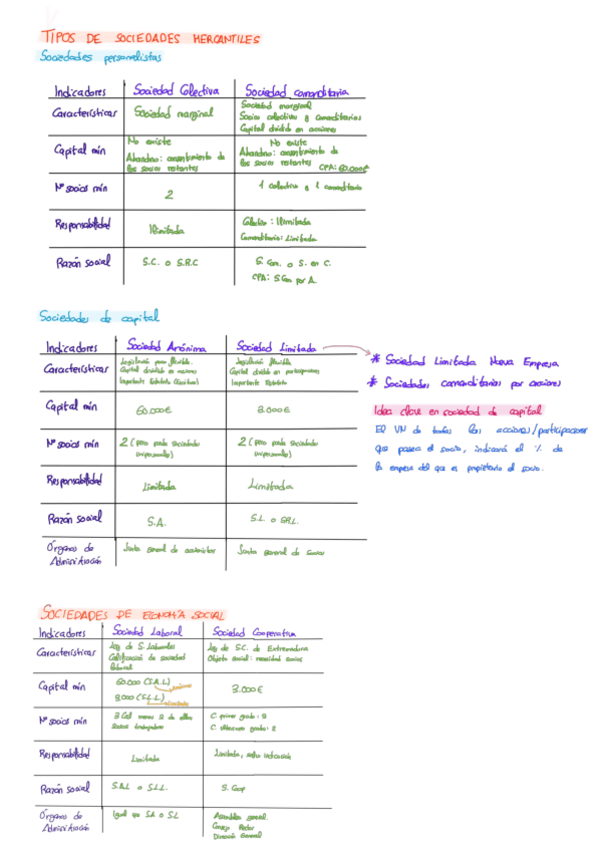 TIPOS DE SOCIEDADES MERCANTILES
Sociedades personalistas
Indicadores Sociedad Colectiva Sociedad comanditaria
Características Sociedad marginal Sociedad marginal
Socios colectivos y comanditarios
Capital dividido en acciones
Capital min No existe No existe
Abandono: consentimiento de Abandono: consentimiento de
los socios restantes los socios restantes CPA: 60.000€
Nº socios min 2 1 colectivo y 1 comanditario
Responsabilidad Ilimitada Colectivo: Ilimitada
Comanditario: Limitada
Razón social S.C. o S.R.C S. Com. o S. en C.
CPA: S.Com por A.
Sociedades de capital
Indicadores Sociedad Anónima Sociedad Limitada
* Sociedad Limitada Nueva Empresa
* Sociedades comanditarias por acciones
Características Legislación poco flexible. Legislación flexible
Capital dividido en acciones Capital dividido en participaciones
Importante Estatuto Importante Estatuto
Capital min 60.000€ 3.000€
Idea clave en sociedad de capital
El VN de todas las acciones/participaciones
que posea el socio, indicará el % de
la empresa del que es propietario el socio.
Nº socios min 2 (pero puede sociedades 2 (pero puede sociedades
unipersonales) unipersonales)
Responsabilidad Limitada Limitada
Razón social S.A. S.L. o SRL.
Órganos de Junta general de accionistas Junta general de socios
Administración
SOCIEDADES DE ECONOMÍA SOCIAL
Indicadores Sociedad Laboral Sociedad Cooperativa
Características Ley de S. Laborales Ley de S.C. de Extremadura
Calificación de sociedad Objeto social: necesidad socios
laboral
Capital min 60.000 (S.A.L) 3.000€
3.000 (S.L.L)
Nº socios min 3 C. primer grado:
C. grado: 2
Responsabilidad Limitada Limitada, salvo
Razón social S.A.L o S.L.L. S. Coop
Órganos de Igual que SA o SL Asamblea general.
Administración Consejo Rector
Dirección General